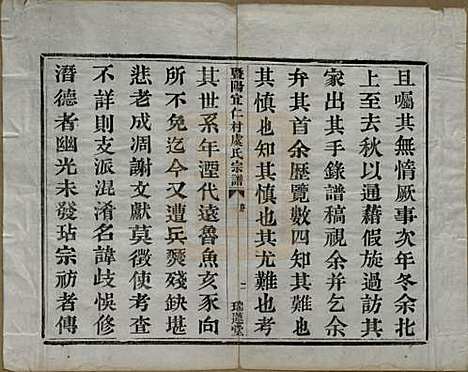 且囑其無惰厥事次年冬余北
上至去秋以通藉假旋過訪其
家出其手錄譜稿視余并乞余
弁其首余歷覽數四知其難也
其慎也知其慎也其尤難也考
暨陽宜仁村虞氏宗譜
序
二
其世系年湮代遠魯魚亥豕向
所不免迄今又遭兵燹殘缺堪
悲老成凋謝文獻莫徵使考查
不詳則支派混淆名諱歧悞修
潛德者幽光未發玷宗祊者傳